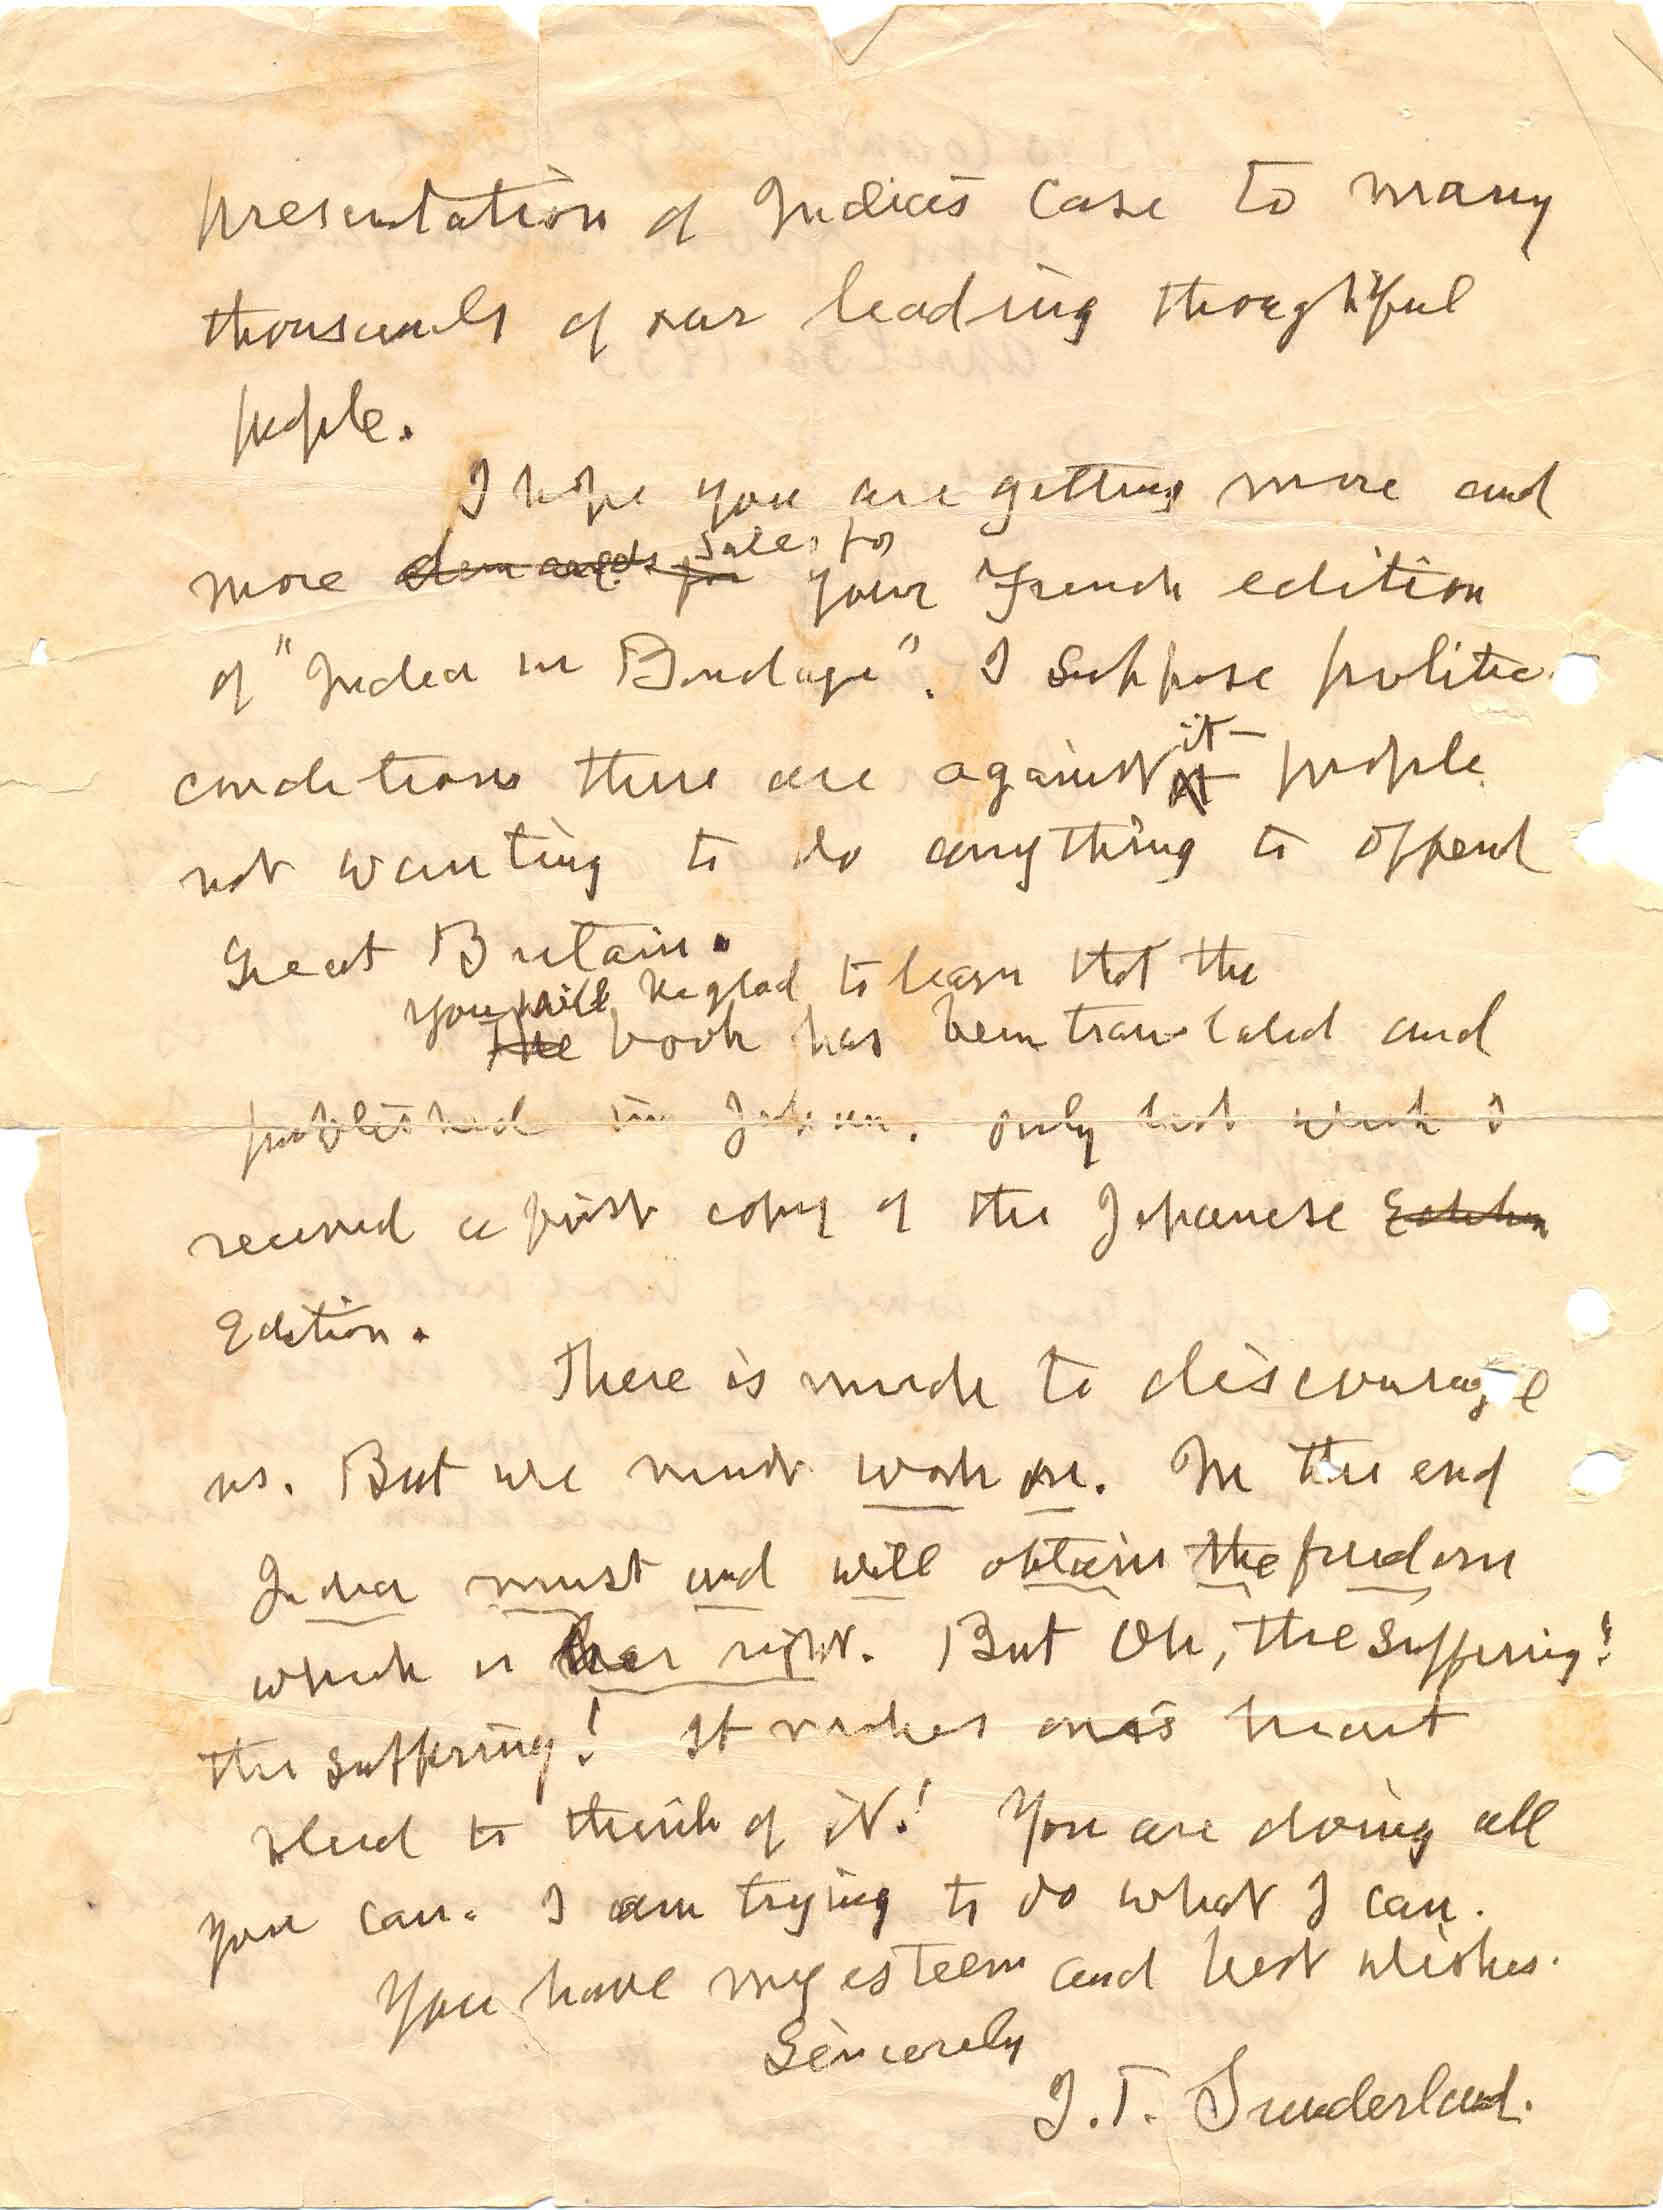 presentation of India's case to many
thousands of our leading thoughtful
people.
I hope you are getting more and
more ~~demands for~~ sales for your French edition
of "India in Bondage". I suppose politic
conditions there are against ~~it~~ it – people
not wanting to do anything to offend
Great Britain.
You will be glad to learn that the
~~The~~ book has been translated and
published in Japan. Only last week I
received a first copy of the Japanese ~~Edition~~
Edition.
There is much to discourage
us. But we must work on. In the end
India must and will obtain the freedom
which is her right. But Oh, the suffering!
the suffering! It makes one's heart
bleed to think of it! You are doing all
you can. I am trying to do what I can.
You have my esteem and best wishes.
Sincerely
J.T. Sunderland.